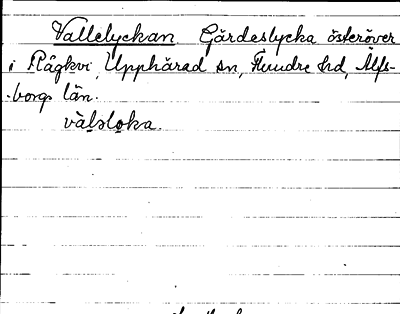 Vallelyckan Gärdeslycka österöver
i Rågkvi, Upphärad sn, Flundre hd, Älfs-
borgs län.
välsloka.